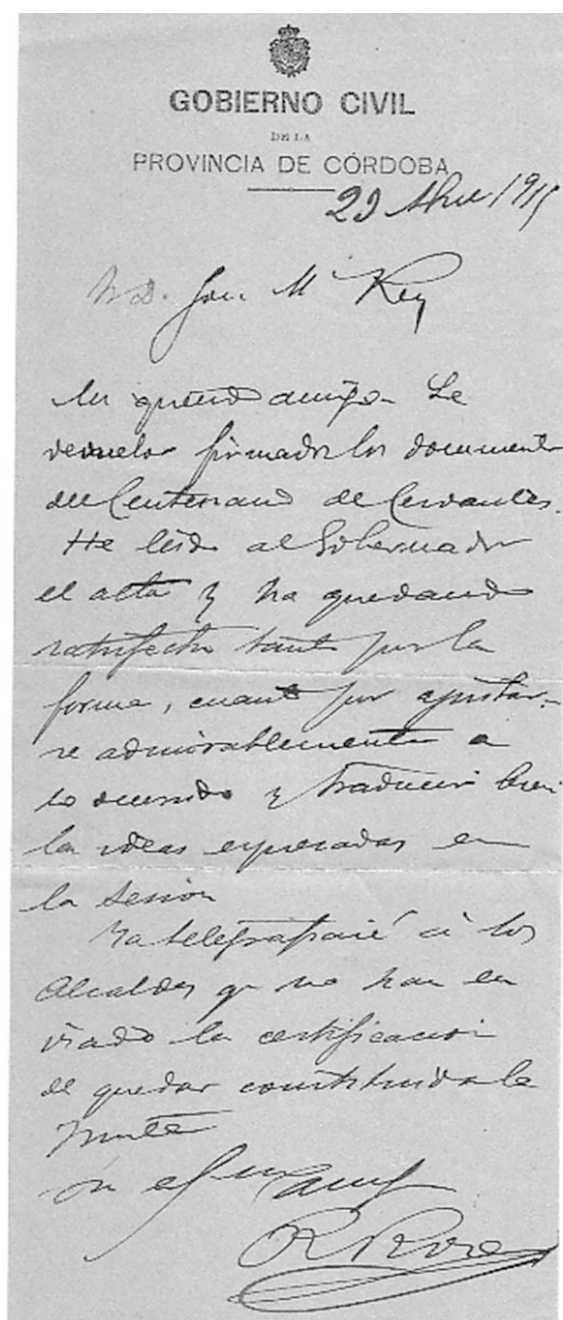 GOBIERNO CIVIL
DE LA
PROVINCIA DE CÓRDOBA
29 1915
Sr D. José Mª Rey
Mi querido amigo. Le
devuelvo firmados los documentos
del Centenario de Cervantes.
He leido al Gobernador
el acta y ha quedando
satisfecho tanto por la
forma, cuanto por ajustar-
se admirablemente a
lo ocurrido y traducir bien
las ideas expresadas en
la sesion
Ya telegrafiaré á los
Alcaldes q no han en
viado la certificacion
de quedar constituida la
Junta
su amigo
R